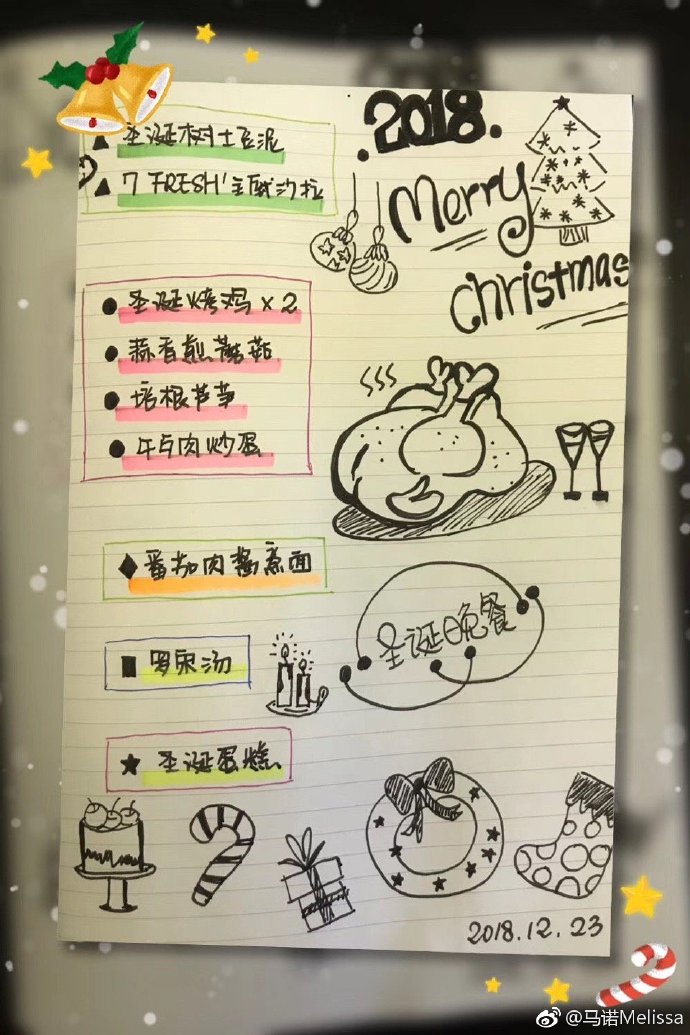 圣诞树土豆泥
7 FRESH'主厨沙拉
2018.
Merry
Christmas
圣诞烤鸡×2
蒜香煎蘑菇
培根芦笋
牛肉炒蛋
番茄肉酱煮面
罗宋汤
圣诞晚餐
圣诞蛋糕
2018.12.23
@马诺Melissa